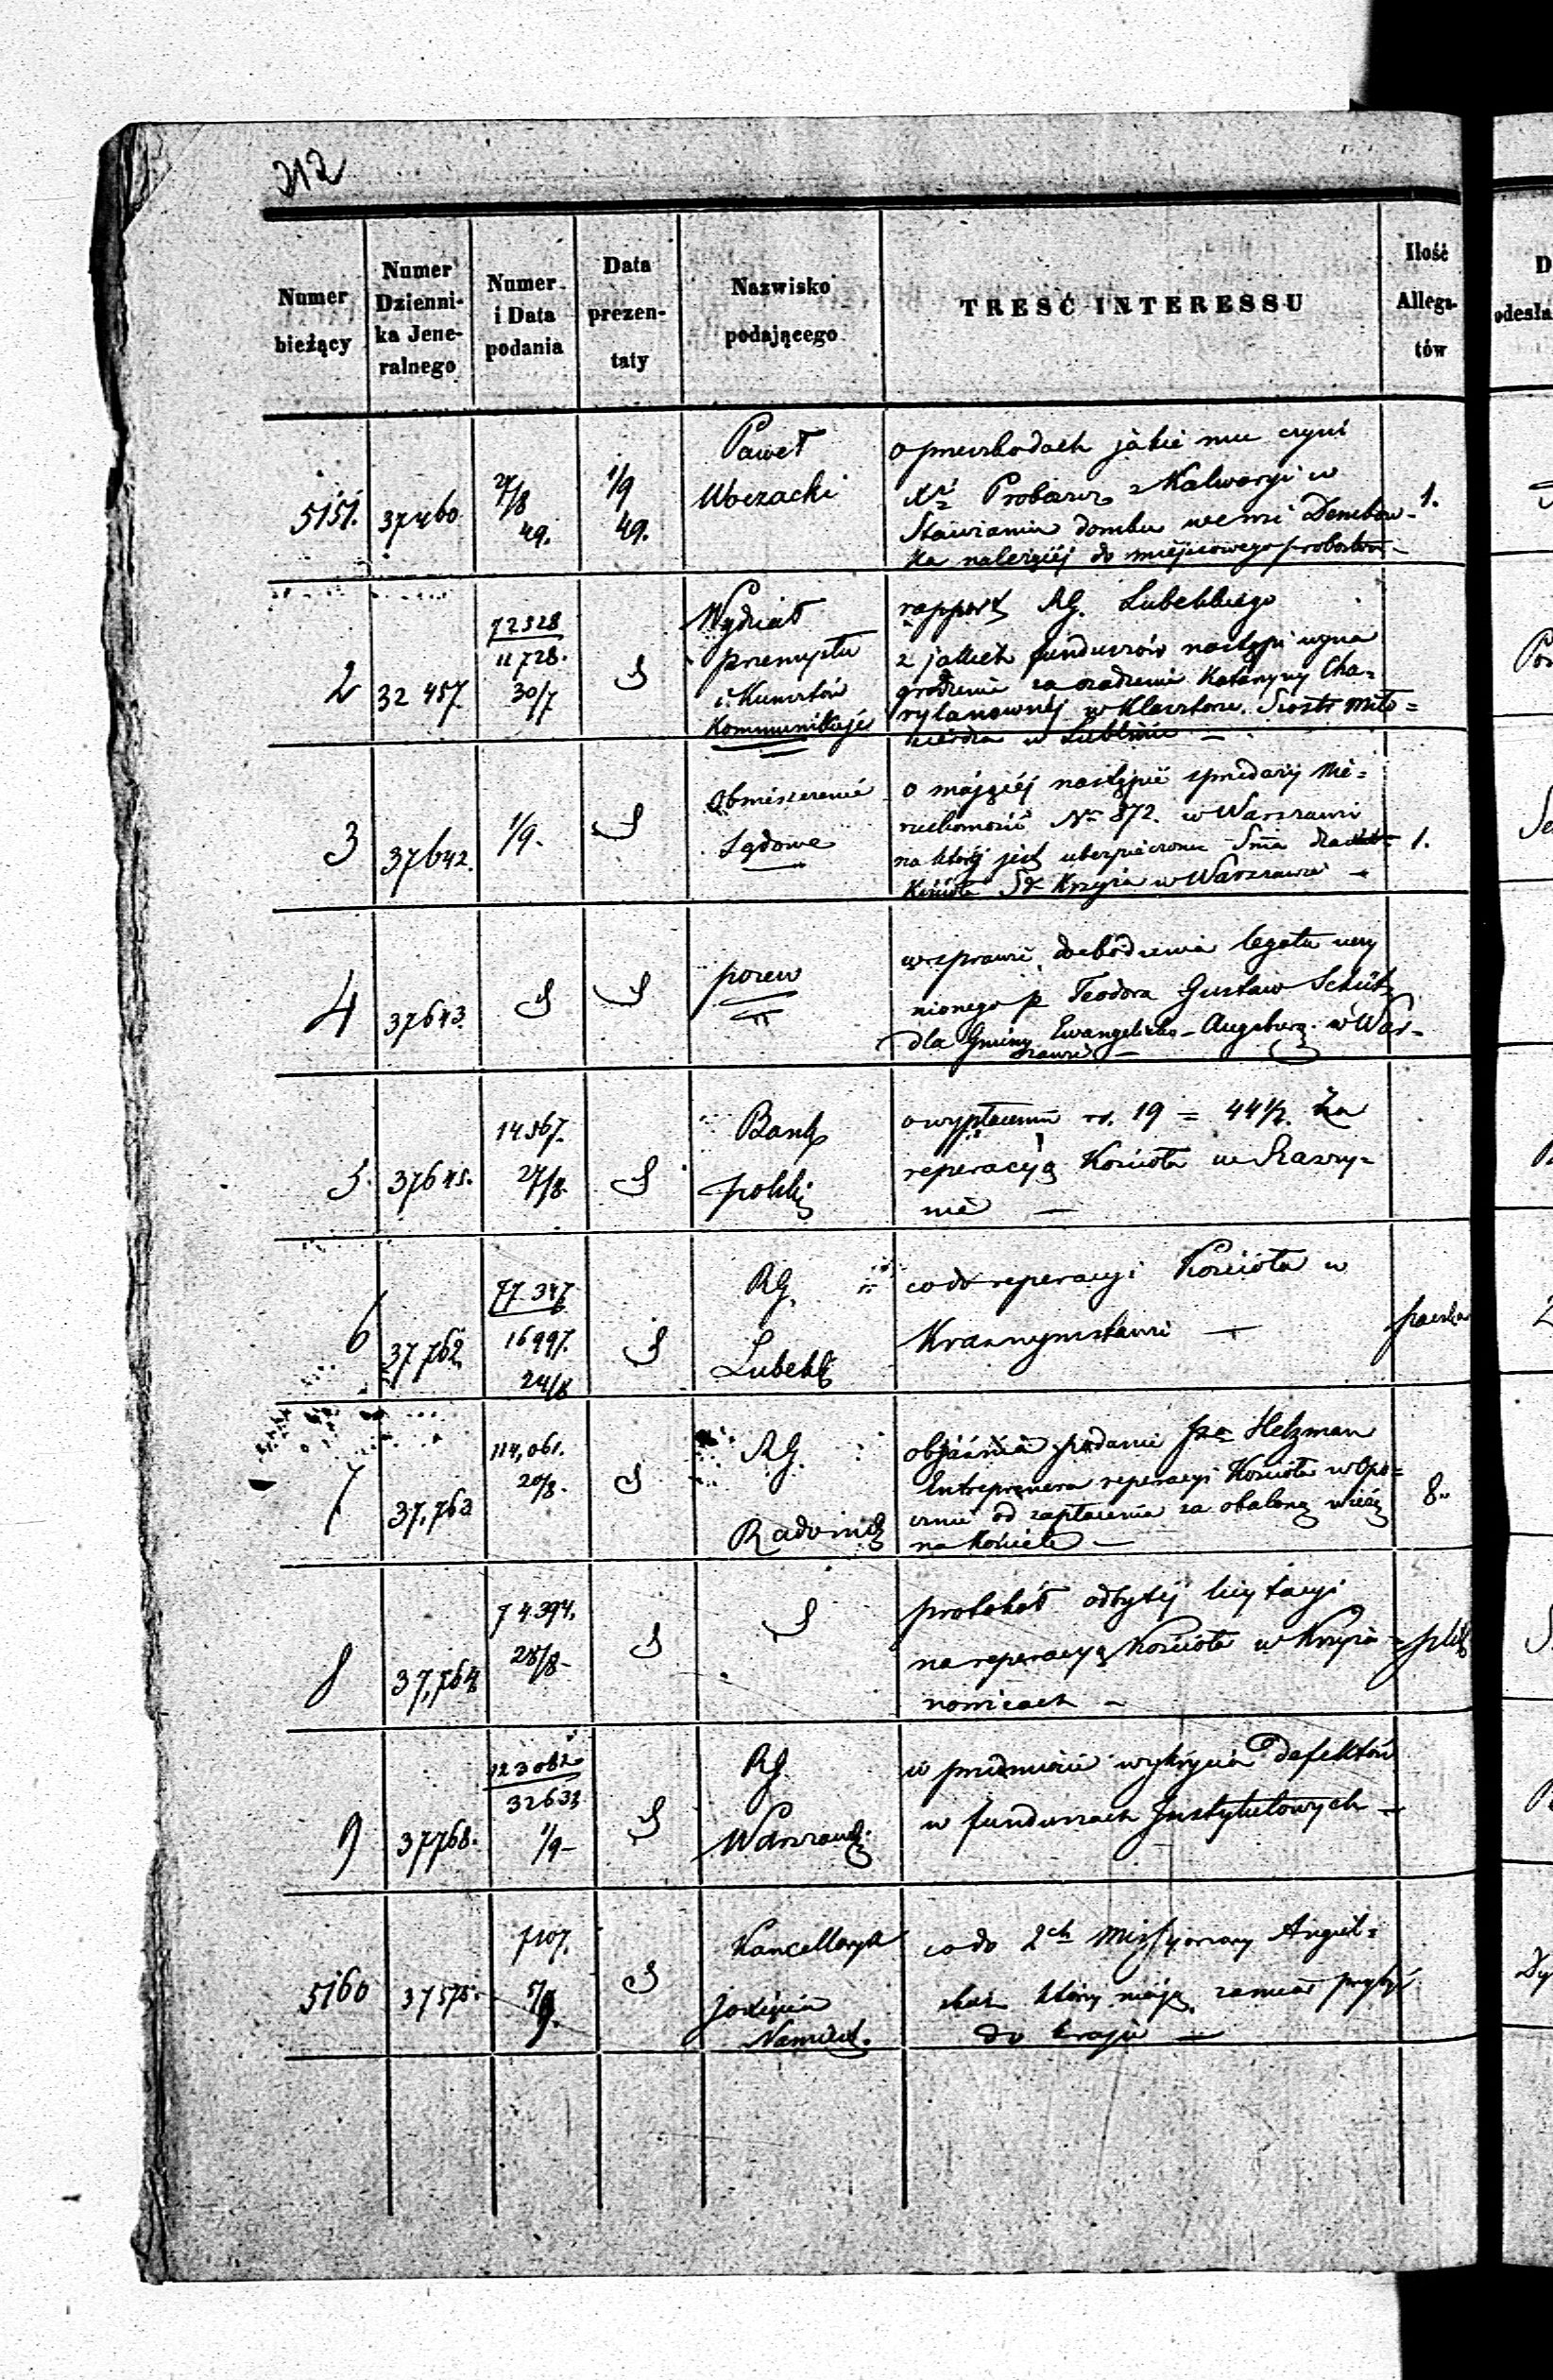 312
Numer bieżący
Numer Dzienni- ka Jene- ralnego
Numer i Data podania
Data prezen- taty
Nazwisko podającego
TRESĆ INTERESSU
Ilość Allega- tów
5151. 37460 27/8 49. 1/9 49.
Paweł
Woczacki
o przeszkodach jakie mu czyni
Xs Proboszcz z Kalwaryi w
Stawianiu domku we wsi Dembow-
ka należącej do miejscowego probostwa
1.
2 32 457 72328 11728. 30/7
Wydział
przemysłu
i Kunsztów
Kommunikuje
rapport RG. Lubelskiego
z jakich funduszów nastąpi wyna
grodzenie za osadzenie Katarzyny Cha=
rylanownej w Klasztorze Siostr miło=
sierdzia w Lublinie —
3 37642. 1/9.
Obwieszczenie
Sądowe
o mającej nastąpić sprzedaży Nie=
ruchomości No 872. w Warszawie
na której jest ubezpieczona Sma
Kościoła St Krzyża w Warszawie —
1.
4 37643.
pozew
w sprawie dochodzenia legatu uczy
nionego p Teodora Gustaw Schütz
dla Gminy Ewangelicko-Augsburg. w War-
szawie —
5. 37645. 14567. 27/8.
Bank
polski
o wypłacenie rs. 19 = 44 1/2. za
reperacyą Kościoła w Raszy=
nie —
6 37762 77 347 16997. 24/8
RG.
Lubelsk
co do reperacyi Kościoła w
Krasnymstawie —
paczka
7 37,763 114,061. 20/8.
RG.
Radomsk
objaśnia podanie Helzman
Entreprenera reperacyi Kościoła w Opo=
cznie od zapłacenia za obaloną wieżę
na Kościele —
8
8 37,764 74394. 28/8-
protokół odbytej licytacyi
na reperacyą Kościoła w Krzyża=
nowicach —
plik
9 37768. 123082 32633 1/9-
RG.
Warszawsk.
w przedmiocie wykrycia defektów
w funduszach Instytutowych —
5160 37575. 7107. 1/9.
Kancellarya
Jo Xięcia
Namiest.
co do 2ch Missyonarzy Angiel=
skich którzy mają zamiar przybyć
do kraju —